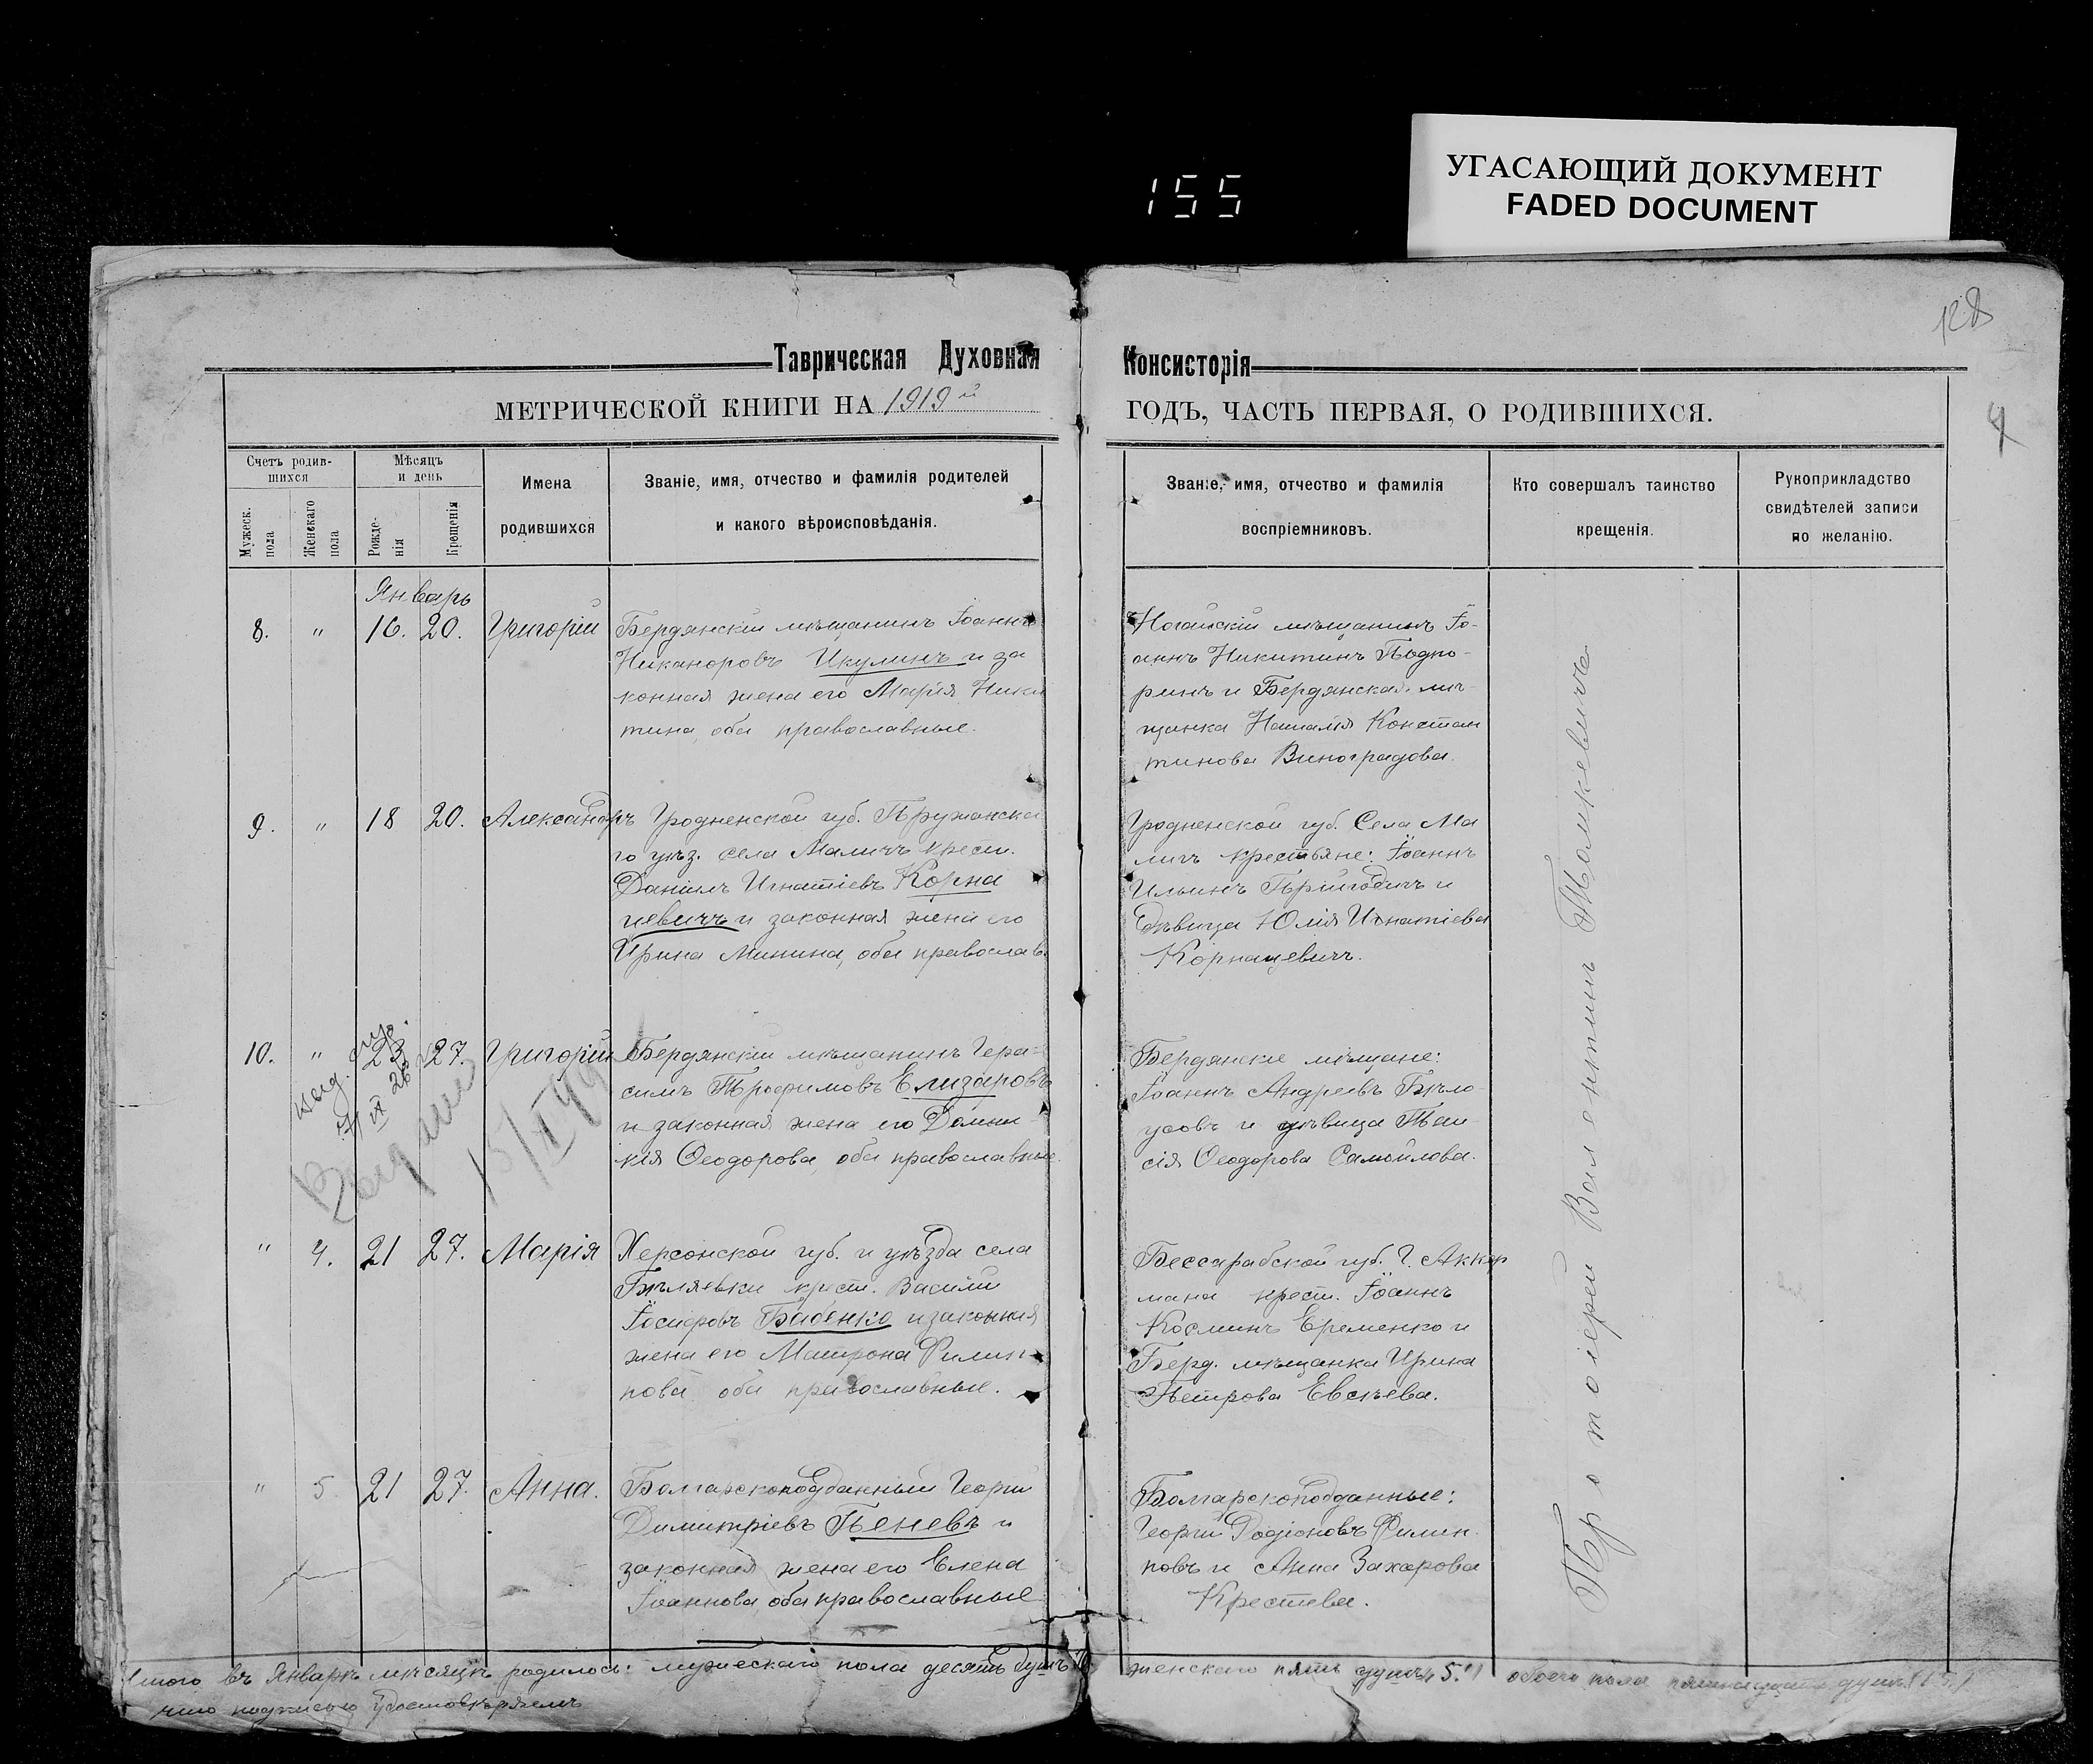 УГАСАЮЩИЙ ДОКУМЕНТ
FADED DOCUMENT
155
128
4
Таврическая Духовная Консисторія
МЕТРИЧЕСКОЙ КНИГИ НА 1919й ГОДЪ, ЧАСТЬ ПЕРВАЯ, О РОДИВШИХСЯ.
Счетъ родив-
шихся
Мужеск.
пола
Женскаго
пола
Мѣсяцъ
и день
Рожде-
нія
Крещенія
Имена
родившихся
Званіе, имя, отчество и фамилія родителей
и какого вѣроисповѣданія.
Званіе, имя, отчество и фамилія
воспріемниковъ.
Кто совершалъ таинство
крещенія.
Рукоприкладство
свидѣтелей записи
по желанію.
Январь
8. " 16. 20. Григорій
Бердянскій мѣщанинъ Іоаннъ
Никаноровъ Икулинъ и за
конная жена его Марія Ники
тина, оба православные.
Ногайскій мѣщанинъ Іо-
аннъ Никитинъ Подпо-
ринъ и Бердянская мѣ-
щанка Наталія Констан
тинова Виноградова.
9. " 18 20. Александръ
Гродненской губ. Пружанска
го уѣз. села Маличъ крест.
Даніилъ Игнатіевъ Корна
цевичъ и законная жена его
Ирина Минина, оба православ.
Гродненской губ. Села Ма
личъ крестьяне: Іоаннъ
Ильинъ и
дѣвица Юлія Игнатіева
Корнацевичъ.
10. " 23 27. Григорій
Бердянскій мѣщанинъ Гера-
симъ Трофимовъ Елизаровъ
и законная жена его Домни-
кія Ѳеодорова, оба православные.
Бердянскіе мѣщане:
Іоаннъ Андреевъ Бѣло-
усовъ и дѣвица Таи-
сія Ѳеодорова Самойлова.
" 4. 21 27. Марія
Херсонской губ. и уѣзда села
Бѣляевки крест. Василій
Іосифовъ Бабенко и законная
жена его Матрона Филип-
пова оба православные.
Бессарабской губ. Г. Аккер
мана крест. Іоаннъ
Косминъ Еременко и
Берд. мѣщанка Ирина
Петрова Евсѣева.
" 5. 21 27. Анна.
Болгарскоподданный Георгій
Димитріевъ Пеневъ и
законная жена его Елена
Іоаннова, оба православные
Болгарскоподданные:
Георгій Родіоновъ Филип-
повъ и Анна Захарова
Крестева.
Протоіерей Валентинъ Томкевичъ
Итого въ Январѣ мѣсяцѣ родилось: мужескаго пола десять душъ женскаго пять душъ "5." обоего пола пятнадцать душъ (15.)
что подписью удостовѣряемъ